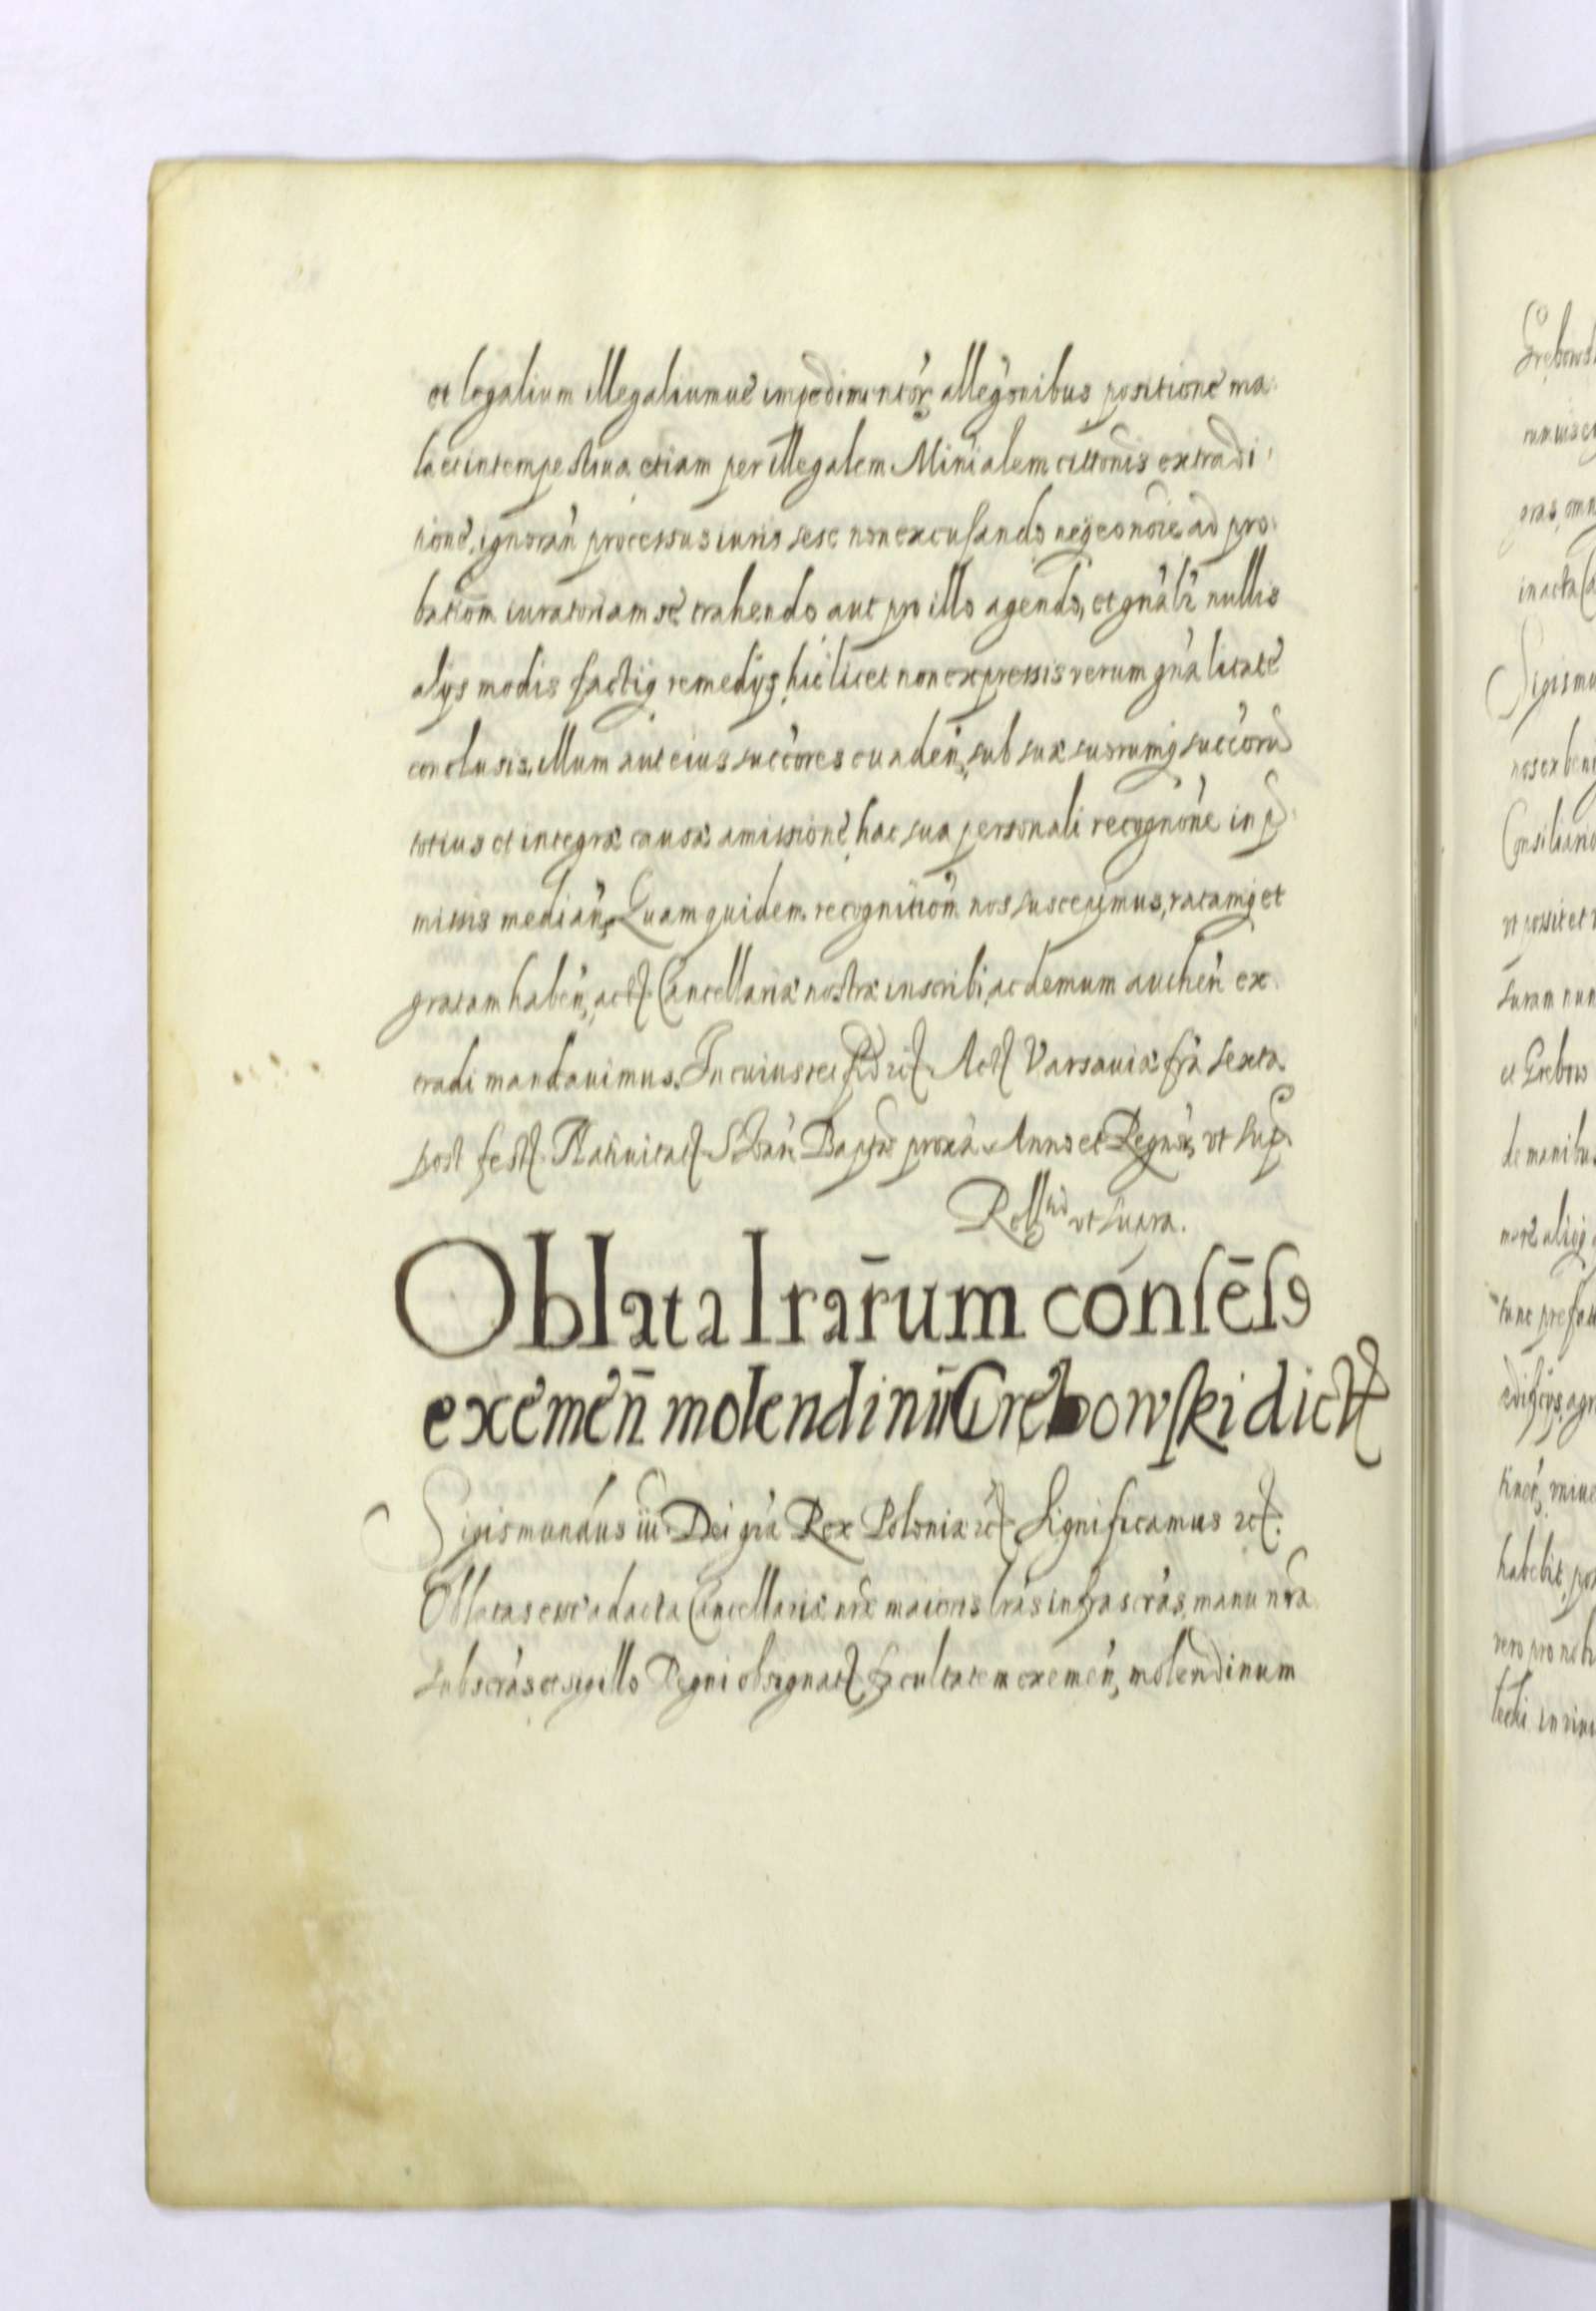 et legalium illegaliumue impedimentor allegonibus positione ma
la et intempestiua etiam per illegalem Minialem cittonis extradi
tione, ignoran processus iuris sese non excusando neq eo noie ad pro
bationem iuratoriam se trahendo aut pro illo agendo, et gnalr nullis
alys modis factiq remedys, hic licet non expressis verum gnalitate
conclusis, illum aut eius succores euaden, sub suæ suorumq succoru
totius et integræ causæ amissione, hac sua personali recognone in p
missis median, Quam quidem recognition nos suscepimus, ratamq et
gratam haben, act Cancellariæ nostræ inscribi, ac demum authen ex
tradi mandauimus. In cuius rei fid rct. Act Varsauiæ fria sexta
post fest Natiuitat S Ioan Baptæ proxa Anno et Regnor vt sup
Rel vt supra.
Oblata lrarum consēsꝰ
exemen molendinū Grebowski dict
Sigismundus iii Dei gra Rex Poloniæ rct Significamus rct.
Oblatas esse ad acta Cancellariæ nræ maioris lras infrascras, manu nra
subscras et sigillo Regni obsignat, facultatem exemen, molendinum
Sigismu
nos ex
ut possit et
suram nun
et Grebow
de manibus
habebit